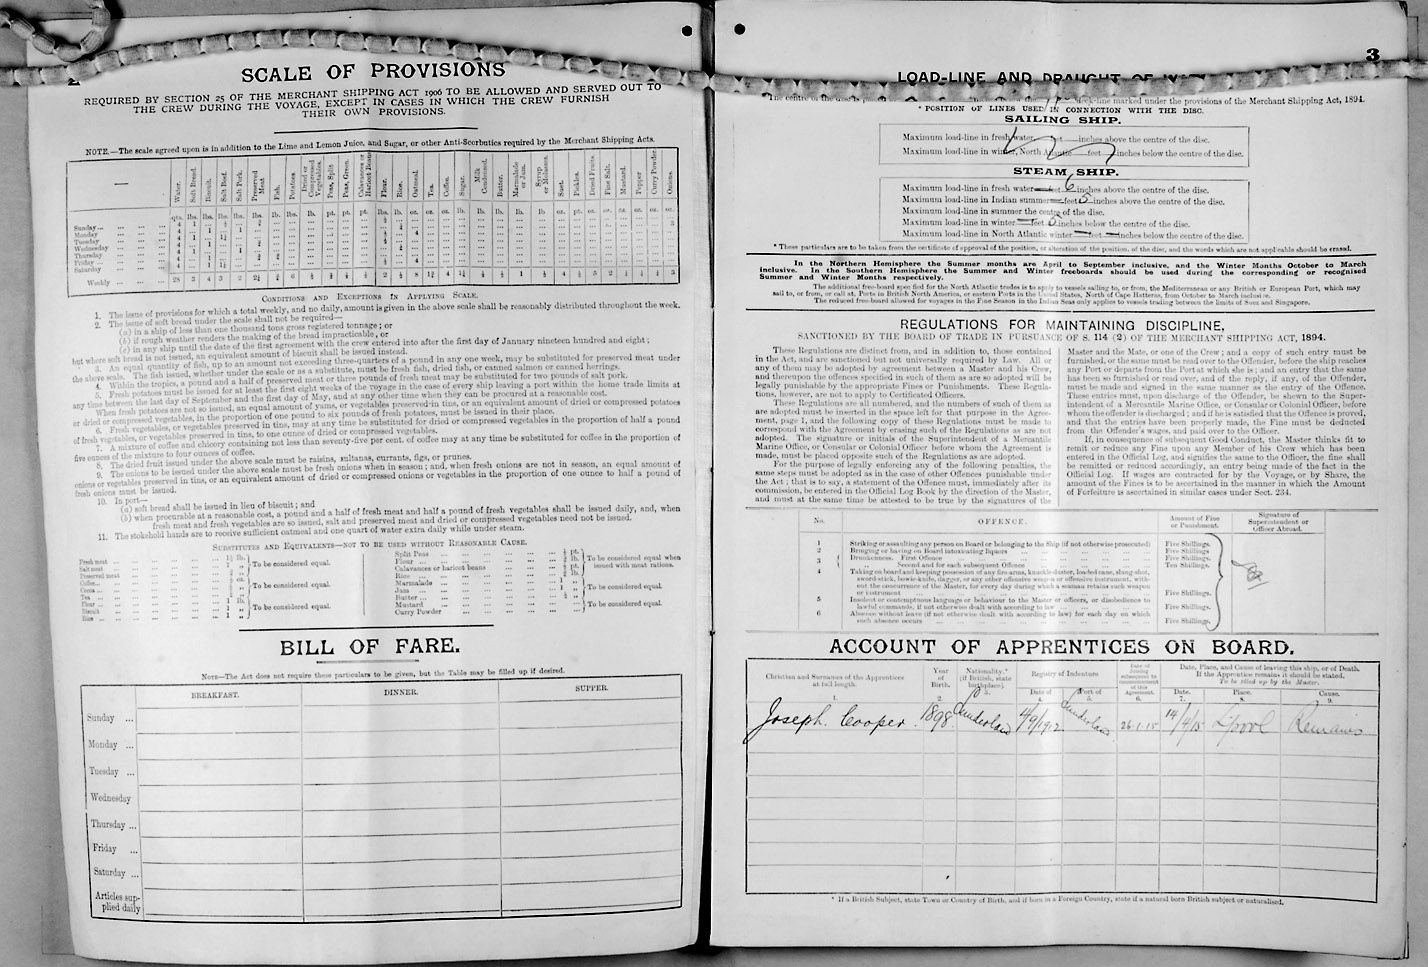 SCALE OF PROVISIONS
REQUIRED BY SECTION 25 OF THE MERCHANT SHIPPING ACT 1906 TO BE ALLOWED AND SERVED OUT TO
THE CREW DURING THE VOYAGE, EXCEPT IN CASES IN WHICH THE CREW FURNISH
THEIR OWN PROVISIONS.
NOTE.—The scale agreed upon is in addition to the Lime and Lemon Juice, and Sugar, or other Anti-Scorbutics required by the Merchant Shipping Acts.
Water. Soft Bread. Biscuit. Salt Beef. Salt Pork. Preserved Meat Fish. Potatoes. Dried or Compressed Vegetables. Peas, Split Peas, Green. Calavances or Haricot Beans Flour. Rice. Oatmeal. Tea. Coffee. Sugar. Milk Condensed. Butter. Marmalade or Jam. Syrup or Molasses. Suet. Pickles. Dried Fruits. Fine Salt. Mustard. Pepper Curry Powder. Onions.
Sunday
Monday
Tuesday
Wednesday
Thursday
Friday
Saturday
Weekly
CONDITIONS AND EXCEPTIONS IN APPLYING SCALE.
1. The issue of provisions for which a total weekly, and no daily, amount is given in the above scale shall be reasonably distributed throughout the week.
2. The issue of soft bread under the scale shall not be required—
(a) in a ship of less than one thousand tons gross registered tonnage; or
(b) if rough weather renders the making of bread impracticable, or
(c) in any ship until the date of the first agreement with the crew entered into after the first day of January nineteen hundred and eight;
but where soft bread is not issued, an equivalent amount of biscuit shall be issued instead.
3. An equal quantity of fish, up to an amount not exceeding three-quarters of a pound in any one week, may be substituted for preserved meat under
the above scale. The fish issued, whether under the scale or as a substitute, must be fresh fish, dried fish, or canned salmon or canned herrings.
4. Within the tropics, a pound and a half of preserved meat or three pounds of fresh meat may be substituted for two pounds of salt pork.
5. Fresh potatoes must be issued for at least the first eight weeks of the voyage in the case of every ship leaving a port within the home trade limits at
any time between the last day of September and the first day of May, and at any other time when they can be procured at a reasonable cost.
When fresh potatoes are not so issued, an equal amount of yams, or vegetables preserved in tins, or an equivalent amount of dried or compressed potatoes
or dried or compressed vegetables, in the proportion of one pound to six pounds of fresh potatoes, must be issued in their place.
6. Fresh vegetables, or vegetables preserved in tins, may at any time be substituted for dried or compressed vegetables in the proportion of half a pound
of fresh vegetables, or vegetables preserved in tins, to one ounce of dried or compressed vegetables.
7. A mixture of coffee and chicory containing not less than seventy-five per cent. of coffee may at any time be substituted for coffee in the proportion of
five ounces of the mixture to four ounces of coffee.
8. The dried fruit issued under the above scale must be raisins, sultanas, currants, figs, or prunes.
9. The onions to be issued under the above scale must be fresh onions when in season; and, when fresh onions are not in season, an equal amount of
onions or vegetables preserved in tins, or an equivalent amount of dried or compressed onions or vegetables in the proportion of one ounce to half a pound of
fresh onions must be issued.
10. In port—
(a) soft bread shall be issued in lieu of biscuit; and
(b) when procurable at a reasonable cost, a pound and a half of fresh meat and half a pound of fresh vegetables shall be issued daily, and, when
fresh meat and fresh vegetables are so issued, salt and preserved meat and dried or compressed vegetables need not be issued.
11. The stokehold hands are to receive sufficient oatmeal and one quart of water extra daily while under steam.
SUBSTITUTES AND EQUIVALENTS—NOT TO BE USED WITHOUT REASONABLE CAUSE.
Fresh meat
Salt meat
Preserved meat
To be considered equal.
Coffee
Cocoa
Tea
To be considered equal.
Flour
Biscuit
Rice
To be considered equal.
Split Peas
Flour
Calavances or haricot beans
Rice
To be considered equal when
issued with meat rations.
Marmalade
Jam
Butter
To be considered equal.
Mustard
Curry Powder
To be considered equal.
BILL OF FARE.
NOTE—The Act does not require these particulars to be given, but the Table may be filled up if desired.
BREAKFAST. DINNER. SUPPER.
Sunday ...
Monday ...
Tuesday ...
Wednesday
Thursday ...
Friday ...
Saturday ...
Articles sup-
plied daily
3
LOAD-LINE AND DRAUGHT OF
deck-line marked under the provisions of the Merchant Shipping Act, 1894.
* POSITION OF LINES USED IN CONNECTION WITH THE DISC.
SAILING SHIP.
Maximum load-line in fresh water feet inches above the centre of the disc.
Maximum load-line in winter, North Atlantic feet inches below the centre of the disc.
STEAM SHIP.
Maximum load-line in fresh water feet 6 inches above the centre of the disc.
Maximum load-line in Indian summer feet inches above the centre of the disc.
Maximum load-line in summer the centre of the disc.
Maximum load-line in winter feet inches below the centre of the disc.
Maximum load-line in North Atlantic winter inches below the centre of the disc.
* These particulars are to be taken from the certificate of approval of the position, or alteration of the position, of the disc, and the words which are not applicable should be erased.
In the Northern Hemisphere the Summer months are April to September inclusive, and the Winter Months October to March
inclusive. In the Southern Hemisphere the Summer and Winter freeboards should be used during the corresponding or recognised
Summer and Winter Months respectively.
The additional free-board specified for the North Atlantic trades is to apply to vessels sailing to, or from, the Mediterranean or any British or European Port, which may
sail to, or from, or call at, Ports in British North America, or eastern Ports in the United States, North of Cape Hatteras, from October to March inclusive.
The reduced free-board allowed for voyages in the Fine Season in the Indian Seas only applies to vessels trading between the limits of Suez and Singapore.
REGULATIONS FOR MAINTAINING DISCIPLINE,
SANCTIONED BY THE BOARD OF TRADE IN PURSUANCE OF S. 114 (2) OF THE MERCHANT SHIPPING ACT, 1894.
These Regulations are distinct from, and in addition to, those contained
in the Act, and are sanctioned but not universally required by Law. All or
any of them may be adopted by agreement between a Master and his Crew,
and thereupon the offences specified in such of them as are so adopted will be
legally punishable by the appropriate Fines or Punishments. These Regula-
tions, however, are not to apply to Certificated Officers.
These Regulations are all numbered, and the numbers of such of them as
are adopted must be inserted in the space left for that purpose in the Agree-
ment, page 1, and the following copy of these Regulations must be made to
correspond with the Agreement by erasing such of the Regulations as are not
adopted. The signature or initials of the Superintendent of a Mercantile
Marine Office, or Consular or Colonial Officer before whom the Agreement is
made, must be placed opposite such of the Regulations as are adopted.
For the purpose of legally enforcing any of the following penalties, the
same steps must be adopted as in the case of other Offences punishable under
the Act; that is to say, a statement of the Offence must, immediately after its
commission, be entered in the Official Log Book by the direction of the Master,
and must at the same time be attested to be true by the signatures of the
Master and the Mate, or one of the Crew; and a copy of such entry must be
furnished, or the same must be read over to the Offender, before the ship reaches
any Port or departs from the Port at which she is; and an entry that the same
has been so furnished or read over, and of the reply, if any, of the Offender,
must be made and signed in the same manner as the entry of the Offence.
These entries must, upon discharge of the Offender, be shewn to the Super-
intendent of a Mercantile Marine Office, or Consular or Colonial Officer, before
whom the offender is discharged; and if he is satisfied that the Offence is proved,
and that the entries have been properly made, the Fine must be deducted
from the Offender's wages, and paid over to the Officer.
If, in consequence of subsequent Good Conduct, the Master thinks fit to
remit or reduce any Fine upon any Member of his Crew which has been
entered in the Official Log, and signifies the same to the Officer, the fine shall
be remitted or reduced accordingly, an entry being made of the fact in the
Official Log. If wages are contracted for by the Voyage, or by Share, the
amount of the Fines is to be ascertained in the manner in which the Amount
of Forfeiture is ascertained in similar cases under Sect. 234.
No. OFFENCE. Amount of Fine or Punishment. Signature of Superintendent or Officer Abroad.
1 Striking or assaulting any person on Board or belonging to the Ship (if not otherwise prosecuted) Five Shillings.
2 Bringing or having on Board intoxicating liquors Five Shillings.
3 Drunkenness. First Offence Five Shillings.
Second and for each subsequent Offence Ten Shillings.
4 Taking on board and keeping possession of any fire arms, knuckle-duster, loaded cane, slung-shot,
sword-stick, bowie-knife, dagger, or any other offensive weapon or offensive instrument, with-
out the concurrence of the Master, for every day during which a seaman retains such weapon
or instrument Five Shillings.
5 Insolent or contemptuous language or behaviour to the Master or officers, or disobedience to
lawful commands, if not otherwise dealt with according to law Five Shillings.
6 Absence without leave (if not otherwise dealt with according to law) for each day on which
such absence occurs Five Shillings.
ACCOUNT OF APPRENTICES ON BOARD.
Christian and Surnames of the Apprentices at full length. 1.
Year of Birth. 2.
Nationality.* [if British, state birthplace]. 3.
Registry of Indenture
Date of 4.
Port of 5.
Date of Joining subsequent to commencement of this Agreement. 6.
Date, Place, and Cause of leaving this ship, or of Death.
If the Apprentice remains it should be stated.
To be filled up by the Master.
Date. 7. Place. 8. Cause. 9.
Joseph. Cooper 1898 Sunderland 4/9/1912 Sunderland 26.1.15 14/4/15 L'pool Remains
* If a British Subject, state Town or Country of Birth, and if born in a Foreign Country, state if a natural born British subject or naturalised.